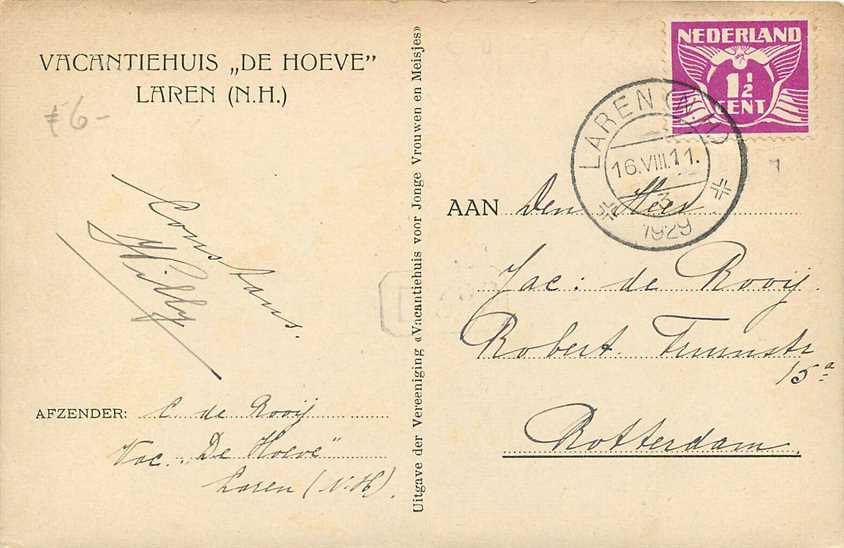 VACANTIEHUIS „DE HOEVE”
LAREN (N.H.)
6-
Constans.
Willy
AFZENDER: C de Rooij
Vac. „De Hoeve”
Laren (N.H).
Uitgave der Vereeniging «Vacantiehuis voor Jonge Vrouwen en Meisjes»
NEDERLAND
1½
CENT
LAREN (N.H)
16.VIII.11.
3
1929
AAN Den Heer
Jac: de Rooij.
Robert. Fruinstr
15a
Rotterdam.